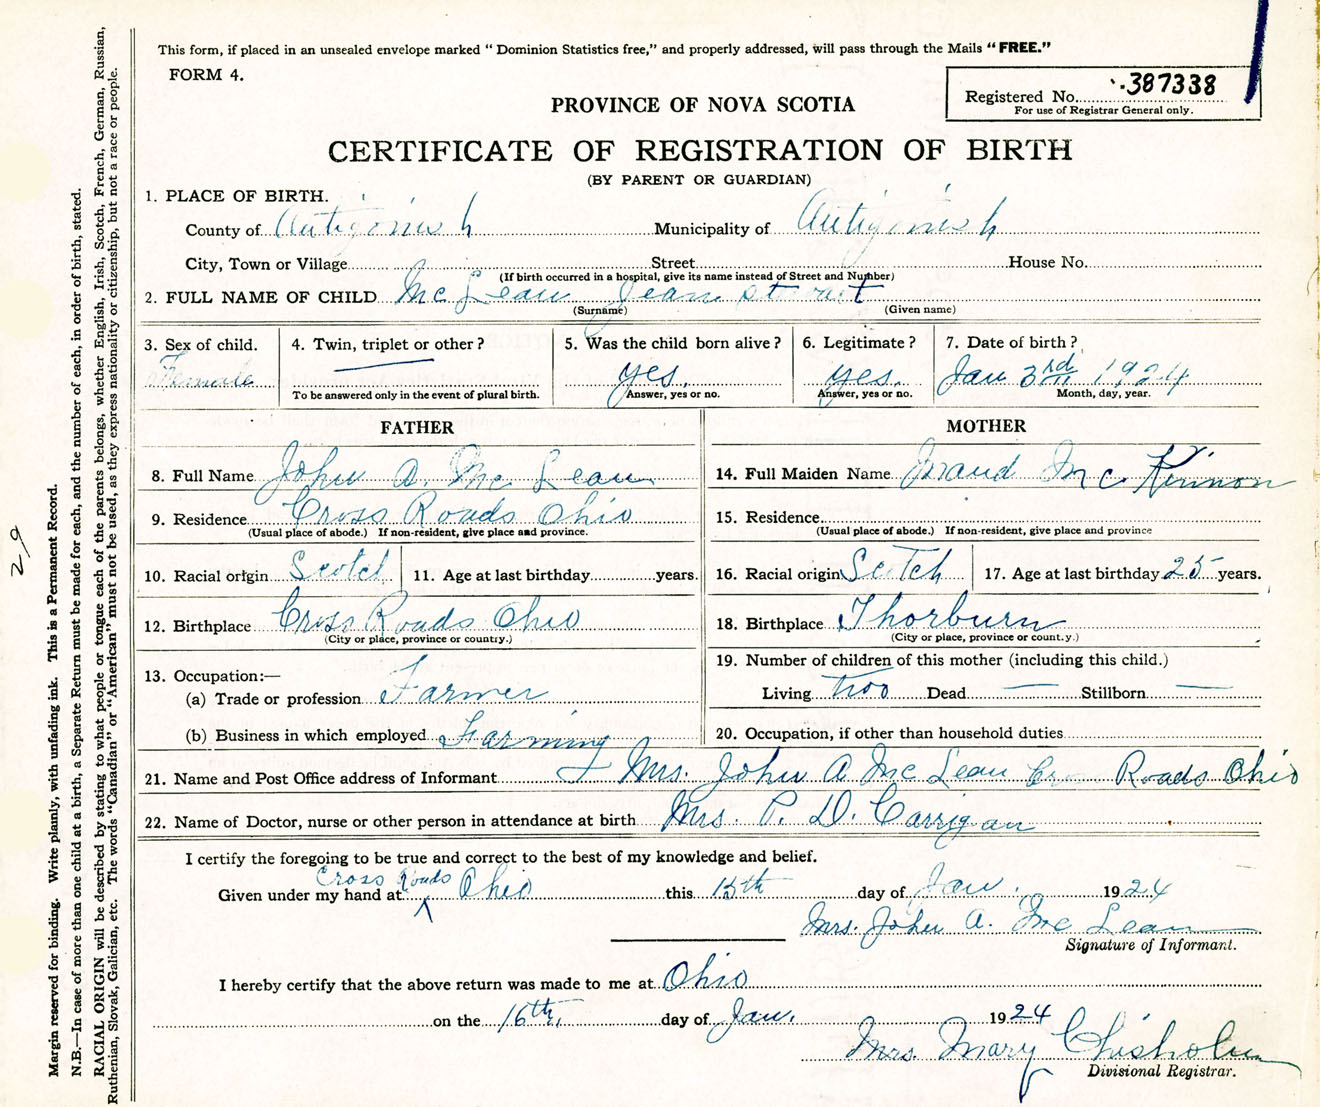 This form, if placed in an unsealed envelope marked "Dominion Statistics free," and properly addressed, will pass through the Mails "FREE."
FORM 4.
Registered No. 387338
For use of Registrar General only.
PROVINCE OF NOVA SCOTIA
CERTIFICATE OF REGISTRATION OF BIRTH
(BY PARENT OR GUARDIAN)
1. PLACE OF BIRTH.
County of Antigonish Municipality of Antigonish
City, Town or Village Street House No.
(If birth occurred in a hospital, give its name instead of Street and Number)
2. FULL NAME OF CHILD McLean Jean Stewart
(Surname) (Given name)
3. Sex of child. 4. Twin, triplet or other? 5. Was the child born alive? 6. Legitimate? 7. Date of birth?
Female — yes. yes. Jan 3rd 1924
To be answered only in the event of plural birth. Answer, yes or no. Answer, yes or no. Month, day, year.
FATHER
8. Full Name John A. McLean
9. Residence Cross Roads Ohio
(Usual place of abode.) If non-resident, give place and province.
10. Racial origin Scotch 11. Age at last birthday years.
12. Birthplace Cross Roads Ohio
(City or place, province or country.)
13. Occupation:—
(a) Trade or profession Farmer
(b) Business in which employed Farming
MOTHER
14. Full Maiden Name Maud McKinnon
15. Residence
(Usual place of abode.) If non-resident, give place and province
16. Racial origin Scotch 17. Age at last birthday 25 years.
18. Birthplace Thorburn
(City or place, province or country.)
19. Number of children of this mother (including this child.)
Living two Dead — Stillborn —
20. Occupation, if other than household duties
21. Name and Post Office address of Informant Mrs. John A McLean Cross Roads Ohio
22. Name of Doctor, nurse or other person in attendance at birth Mrs. P. D. Carrigan
I certify the foregoing to be true and correct to the best of my knowledge and belief.
Given under my hand at Cross Roads Ohio this 15th day of Jan. 1924
Mrs. John A. McLean
Signature of Informant.
I hereby certify that the above return was made to me at Ohio
on the 16th. day of Jan. 1924
Mrs. Mary Chisholm
Divisional Registrar.
Margin reserved for binding. Write plainly, with unfading ink. This is a Permanent Record.
N.B.—In case of more than one child at a birth, a Separate Return must be made for each, and the number of each, in order of birth, stated.
RACIAL ORIGIN will be described by stating to what people or tongue each of the parents belongs, whether English, Irish, Scotch, French, German, Russian,
Ruthenian, Slovak, Galician, etc. The words "Canadian" or "American" must not be used, as they express nationality or citizenship, but not a race or people.
29